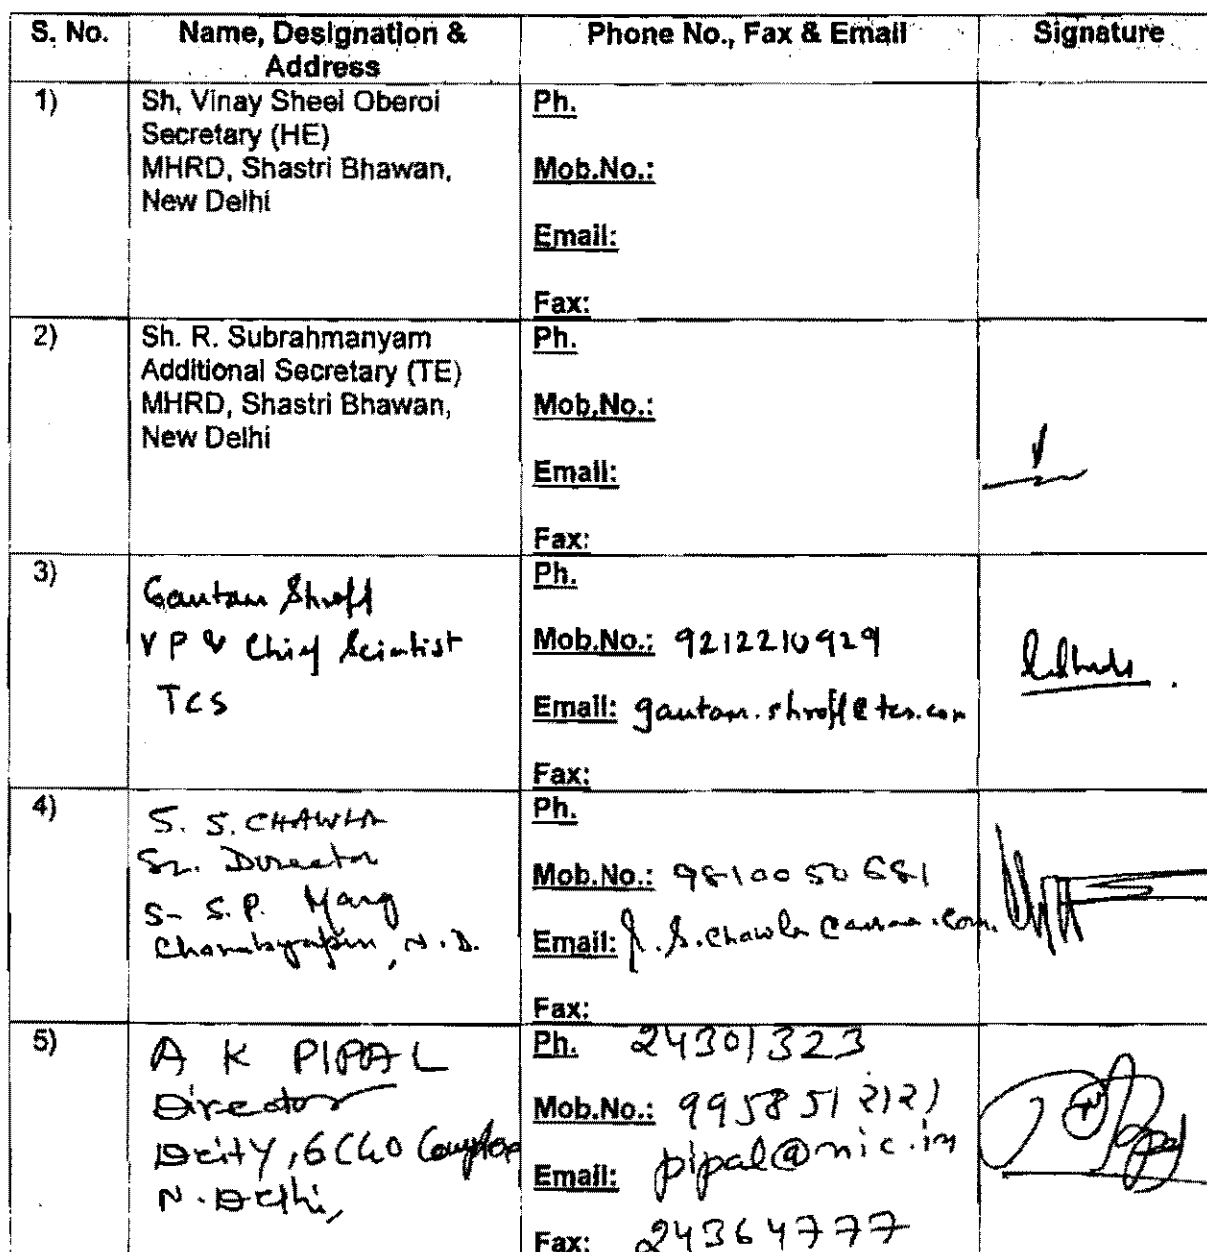 S. No.
Name, Designation &
Address
Phone No., Fax & Email
Signature
1)
Sh. Vinay Sheel Oberoi
Secretary (HE)
MHRD, Shastri Bhawan,
New Delhi
Ph.
Mob.No.:
Email:
Fax:
2)
Sh. R. Subrahmanyam
Additional Secretary (TE)
MHRD, Shastri Bhawan,
New Delhi
Ph.
Mob.No.:
Email:
Fax:
3)
Gautam Shroff
VP & Chief Scientist
TCS
Ph.
Mob.No.: 9212210929
Email: gautam.shroff@tcs.com
Fax:
4)
S. S. CHAWLA
Sr. Director
S.P. Marg
N.D.
Ph.
Mob.No.: 9810050681
Email:
Fax:
5)
A K PIPAL
Director
Deity, 6 CGO Complex
N. Delhi,
Ph. 24301323
Mob.No.: 9958512121
Email: pipal@nic.in
Fax: 24364777